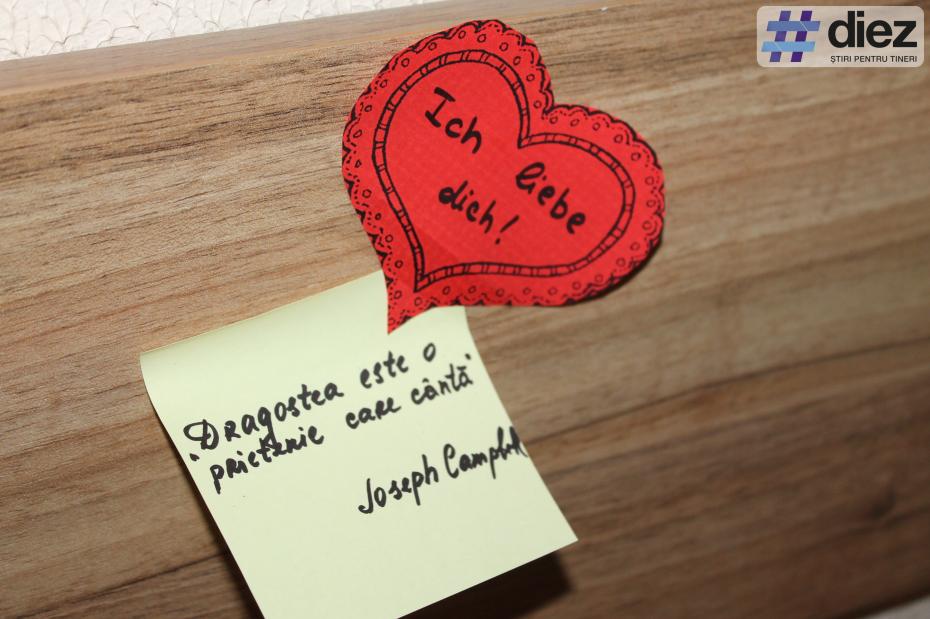 #diez
ȘTIRI PENTRU TINERI
Ich
liebe
dich!
„Dragostea este o
prietenie care cântă"
Joseph Campbell